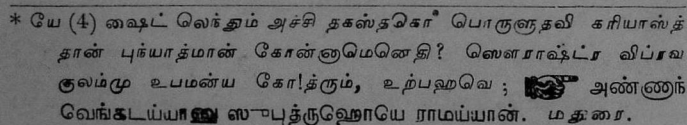 * யே (4) ஷைட் லெந்தும் அச்சி தகஸ்தகொ° பொருளுதவி கரியாஸ்த்
தான் புந்யாத்மான் கோன்னுமெனெதி? ஸௌராஷ்ட்ர விப்ரவ
குலம்மு உபமன்ய கோ!த்ரும், உற்பஹவெ ; அண்ணுந்
வெங்கடய்யானு ஸுபுத்ருஹோயே ராமய்யான். மதுரை.